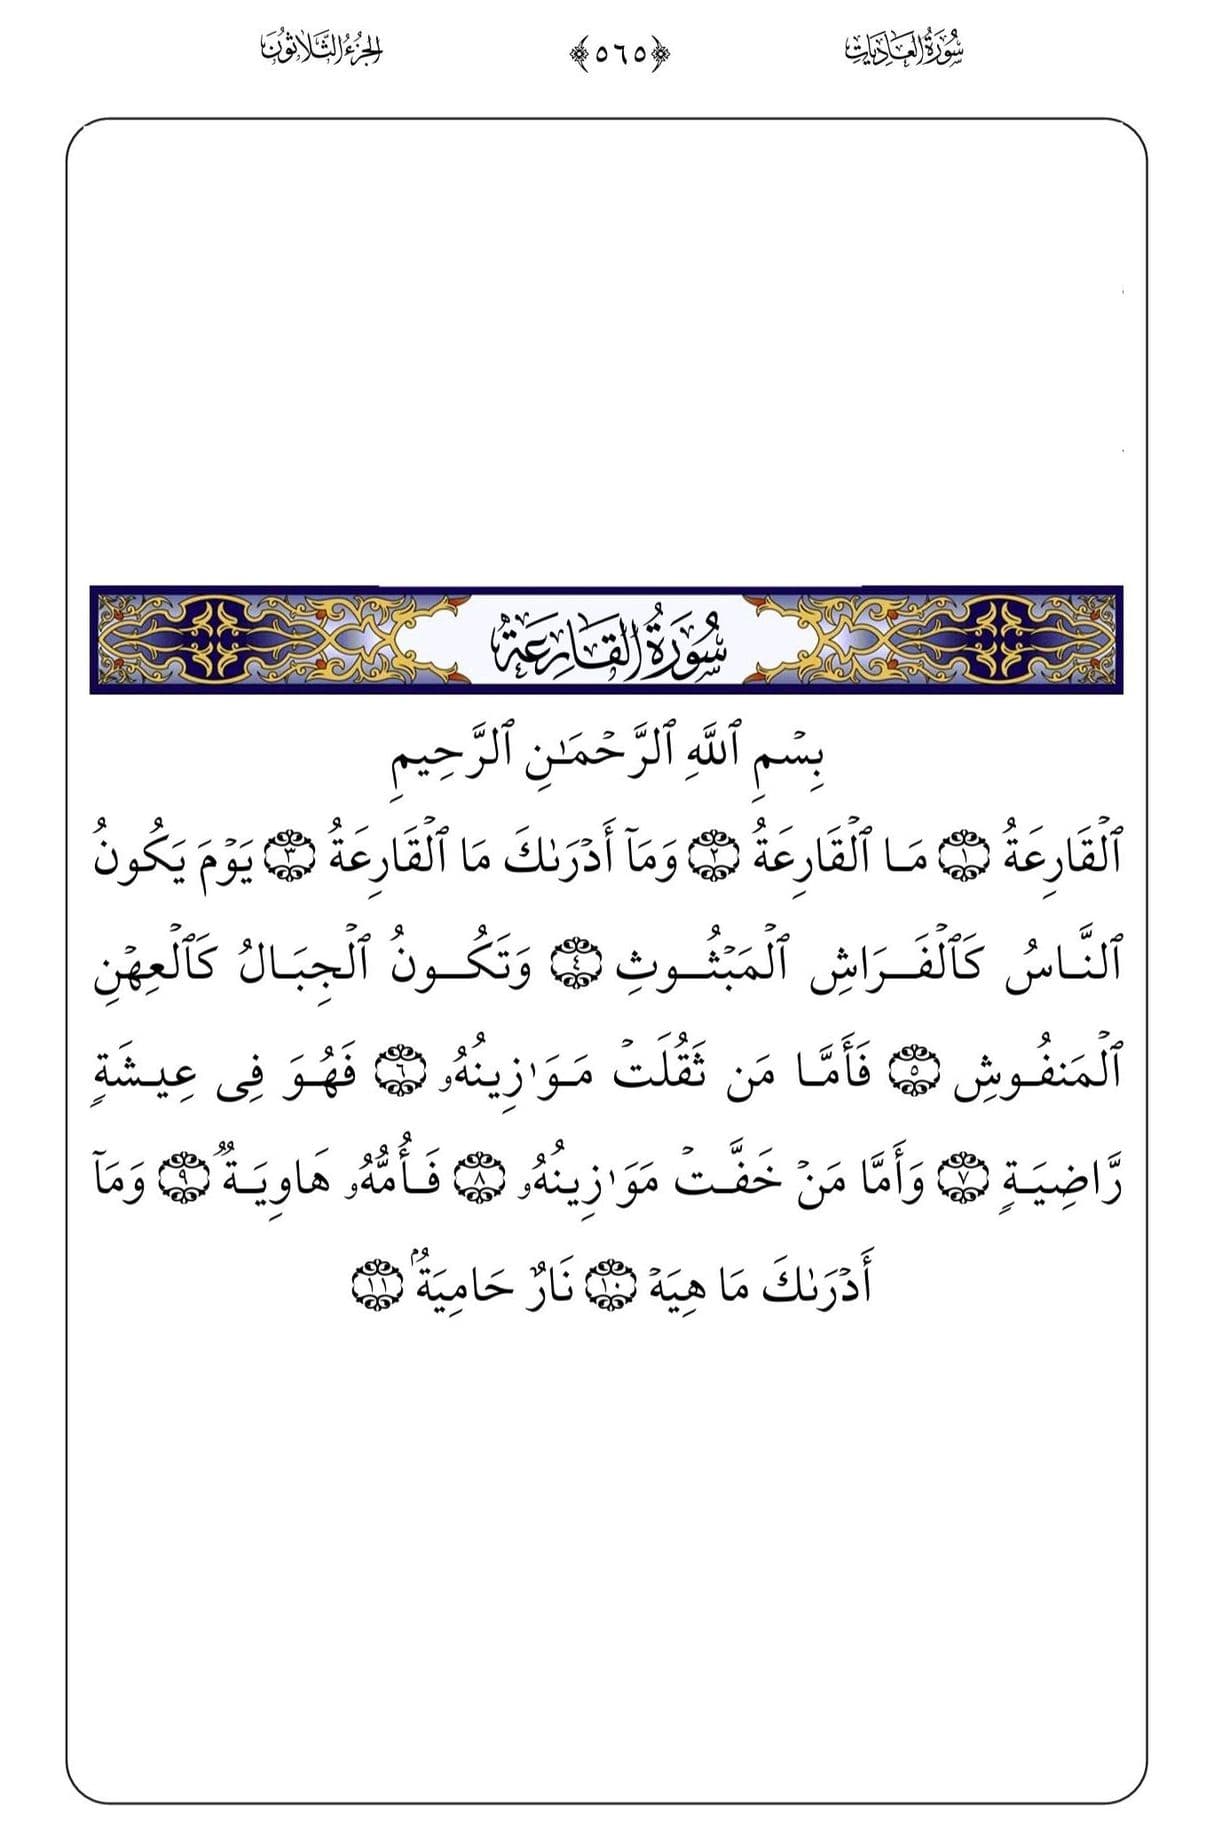 سُورَةُ العَادِيَاتِ ﴿٥٦٥﴾ الجُزْءُ الثَّلَاثُونَ
سُورَةُ القَارِعَةِ
بِسۡمِ ٱللَّهِ ٱلرَّحۡمَـٰنِ ٱلرَّحِیمِ
ٱلۡقَارِعَةُ ۝١ مَا ٱلۡقَارِعَةُ ۝٢ وَمَاۤ أَدۡرَىٰكَ مَا ٱلۡقَارِعَةُ ۝٣ یَوۡمَ یَكُونُ
ٱلنَّاسُ كَٱلۡفَرَاشِ ٱلۡمَبۡثُوثِ ۝٤ وَتَكُونُ ٱلۡجِبَالُ كَٱلۡعِهۡنِ
ٱلۡمَنفُوشِ ۝٥ فَأَمَّا مَن ثَقُلَتۡ مَوَ ٰ⁠زِینُهُۥ ۝٦ فَهُوَ فِی عِیشَةࣲ
رَّاضِیَةࣲ ۝٧ وَأَمَّا مَنۡ خَفَّتۡ مَوَ ٰ⁠زِینُهُۥ ۝٨ فَأُمُّهُۥ هَاوِیَةࣱ ۝٩ وَمَاۤ
أَدۡرَىٰكَ مَا هِیَهۡ ۝١٠ نَارٌ حَامِیَةُۢ ۝١١